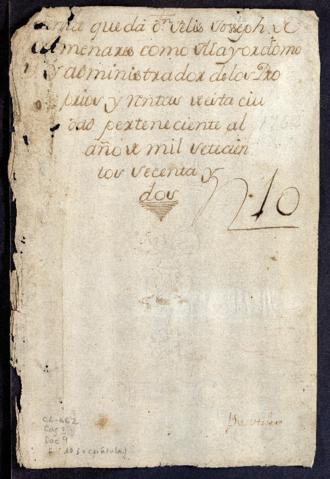 que dá Dn Felis Joseph de
menares como Mayordomo
y administrador de los Pro
prios y rentas de esta ciu
dad perteneciente al
año de mil setecien
tos secenta y
dos
N 10
1762
CL-662
Doc 9